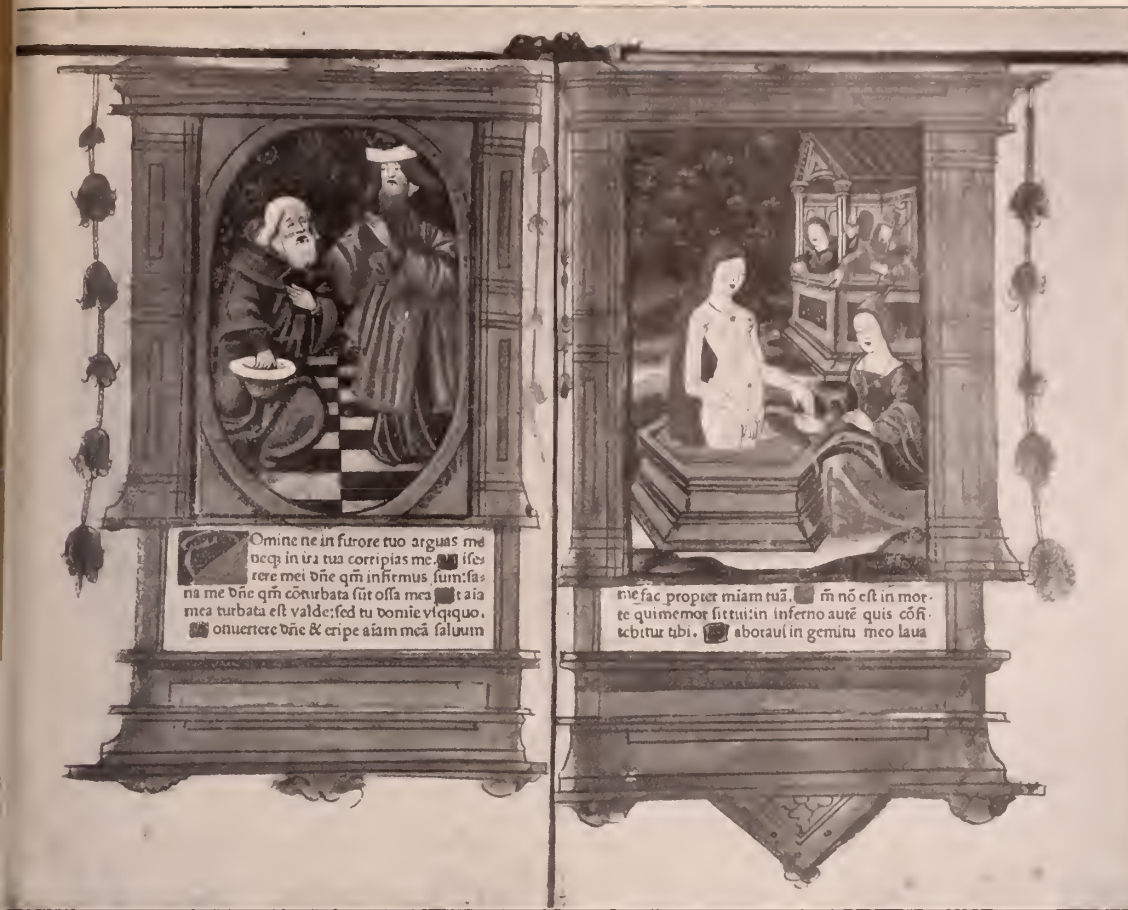 Omine ne in furore tuo arguas me
neqꝫ in ira tua corripias me. ises
rere mei dñe qm̃ infirmus sum:sa-
na me dñe qm̃ cõturbata sũt ossa mea t aĩa
mea turbata est valde:sed tu domie vsqꝗquo.
onuertere dñe & eripe aiam meã saluum
me fac propter miam tuã. m̃ nõ est in mor-
te qui memor sit tui:in inferno autẽ quis cõfi-
tebitur tibi. aboraui in gemitu meo laua